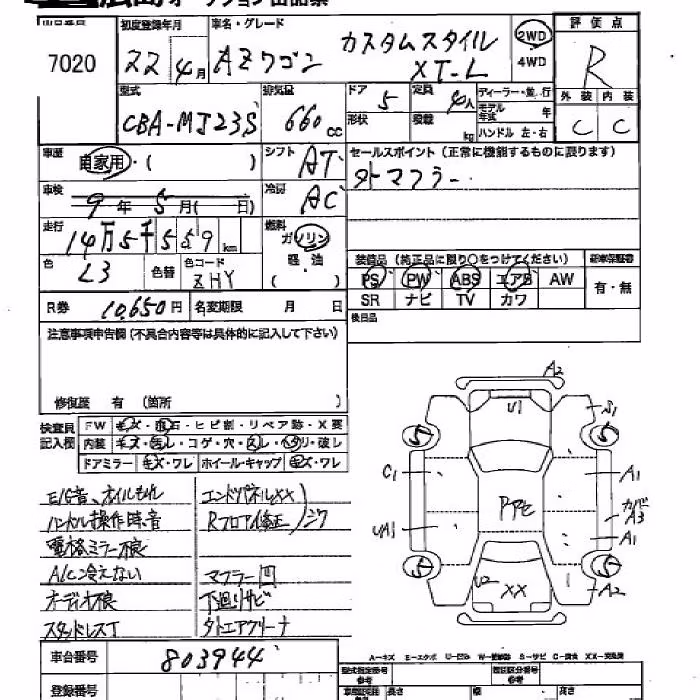 広島オークション出品票
出品番号 初度登録年月 車名・グレード 評価点
7020 22年4月 AZワゴン カスタムスタイル XT-L 2WD 4WD R
型式 排気量 ドア 定員 ディーラー・並行 外装 内装
CBA-MJ23S 660cc 5 4人 モデル年式 年 C C
形状 積載 kg ハンドル 左・右
車歴 自家用・( ) シフト AT セールスポイント(正常に機能するものに限ります)
車検 9年5月( 日) 冷房 AC 外マフラー
走行 14万5千559km 燃料 ガソリン
軽・油
( )
色 L3 色替 色コード ZHY 装備品(純正品に限り○をつけてください) 新車保証書
PS PW ABS エアB AW 有・無
R券 10,650円 名変期限 月 日 SR ナビ TV カワ
注意事項申告欄(不具合内容等は具体的に記入して下さい) 後日品
修復歴 有 (箇所
検査員記入欄 FW キズ・飛石・ヒビ割・リペア跡・X要
内装 キズ・汚レ・コゲ・穴・スレ・ヘタリ・破レ
ドアミラー キズ・ワレ ホイール・キャップ キズ・ワレ
E/G音、オイルもれ エンドパネルXX
ハンドル操作時音 Rフロア修正 ジワ
電格ミラー不良
A/C冷えない マフラー凹
オーディオ不良 下廻りサビ
スタッドレスT 外エアクリーナ
A2
U1 S1
5 5
C1 A1
PPE カバーA3
UA1 A1
5 5
U2 XX A2
A-キズ E-エクボ U-凹み W-補修跡 S-サビ C-腐食 XX-交換済
車台番号 803944
登録番号
型式指定番号 参考 類別区分番号 参考
長さ 幅 高さ